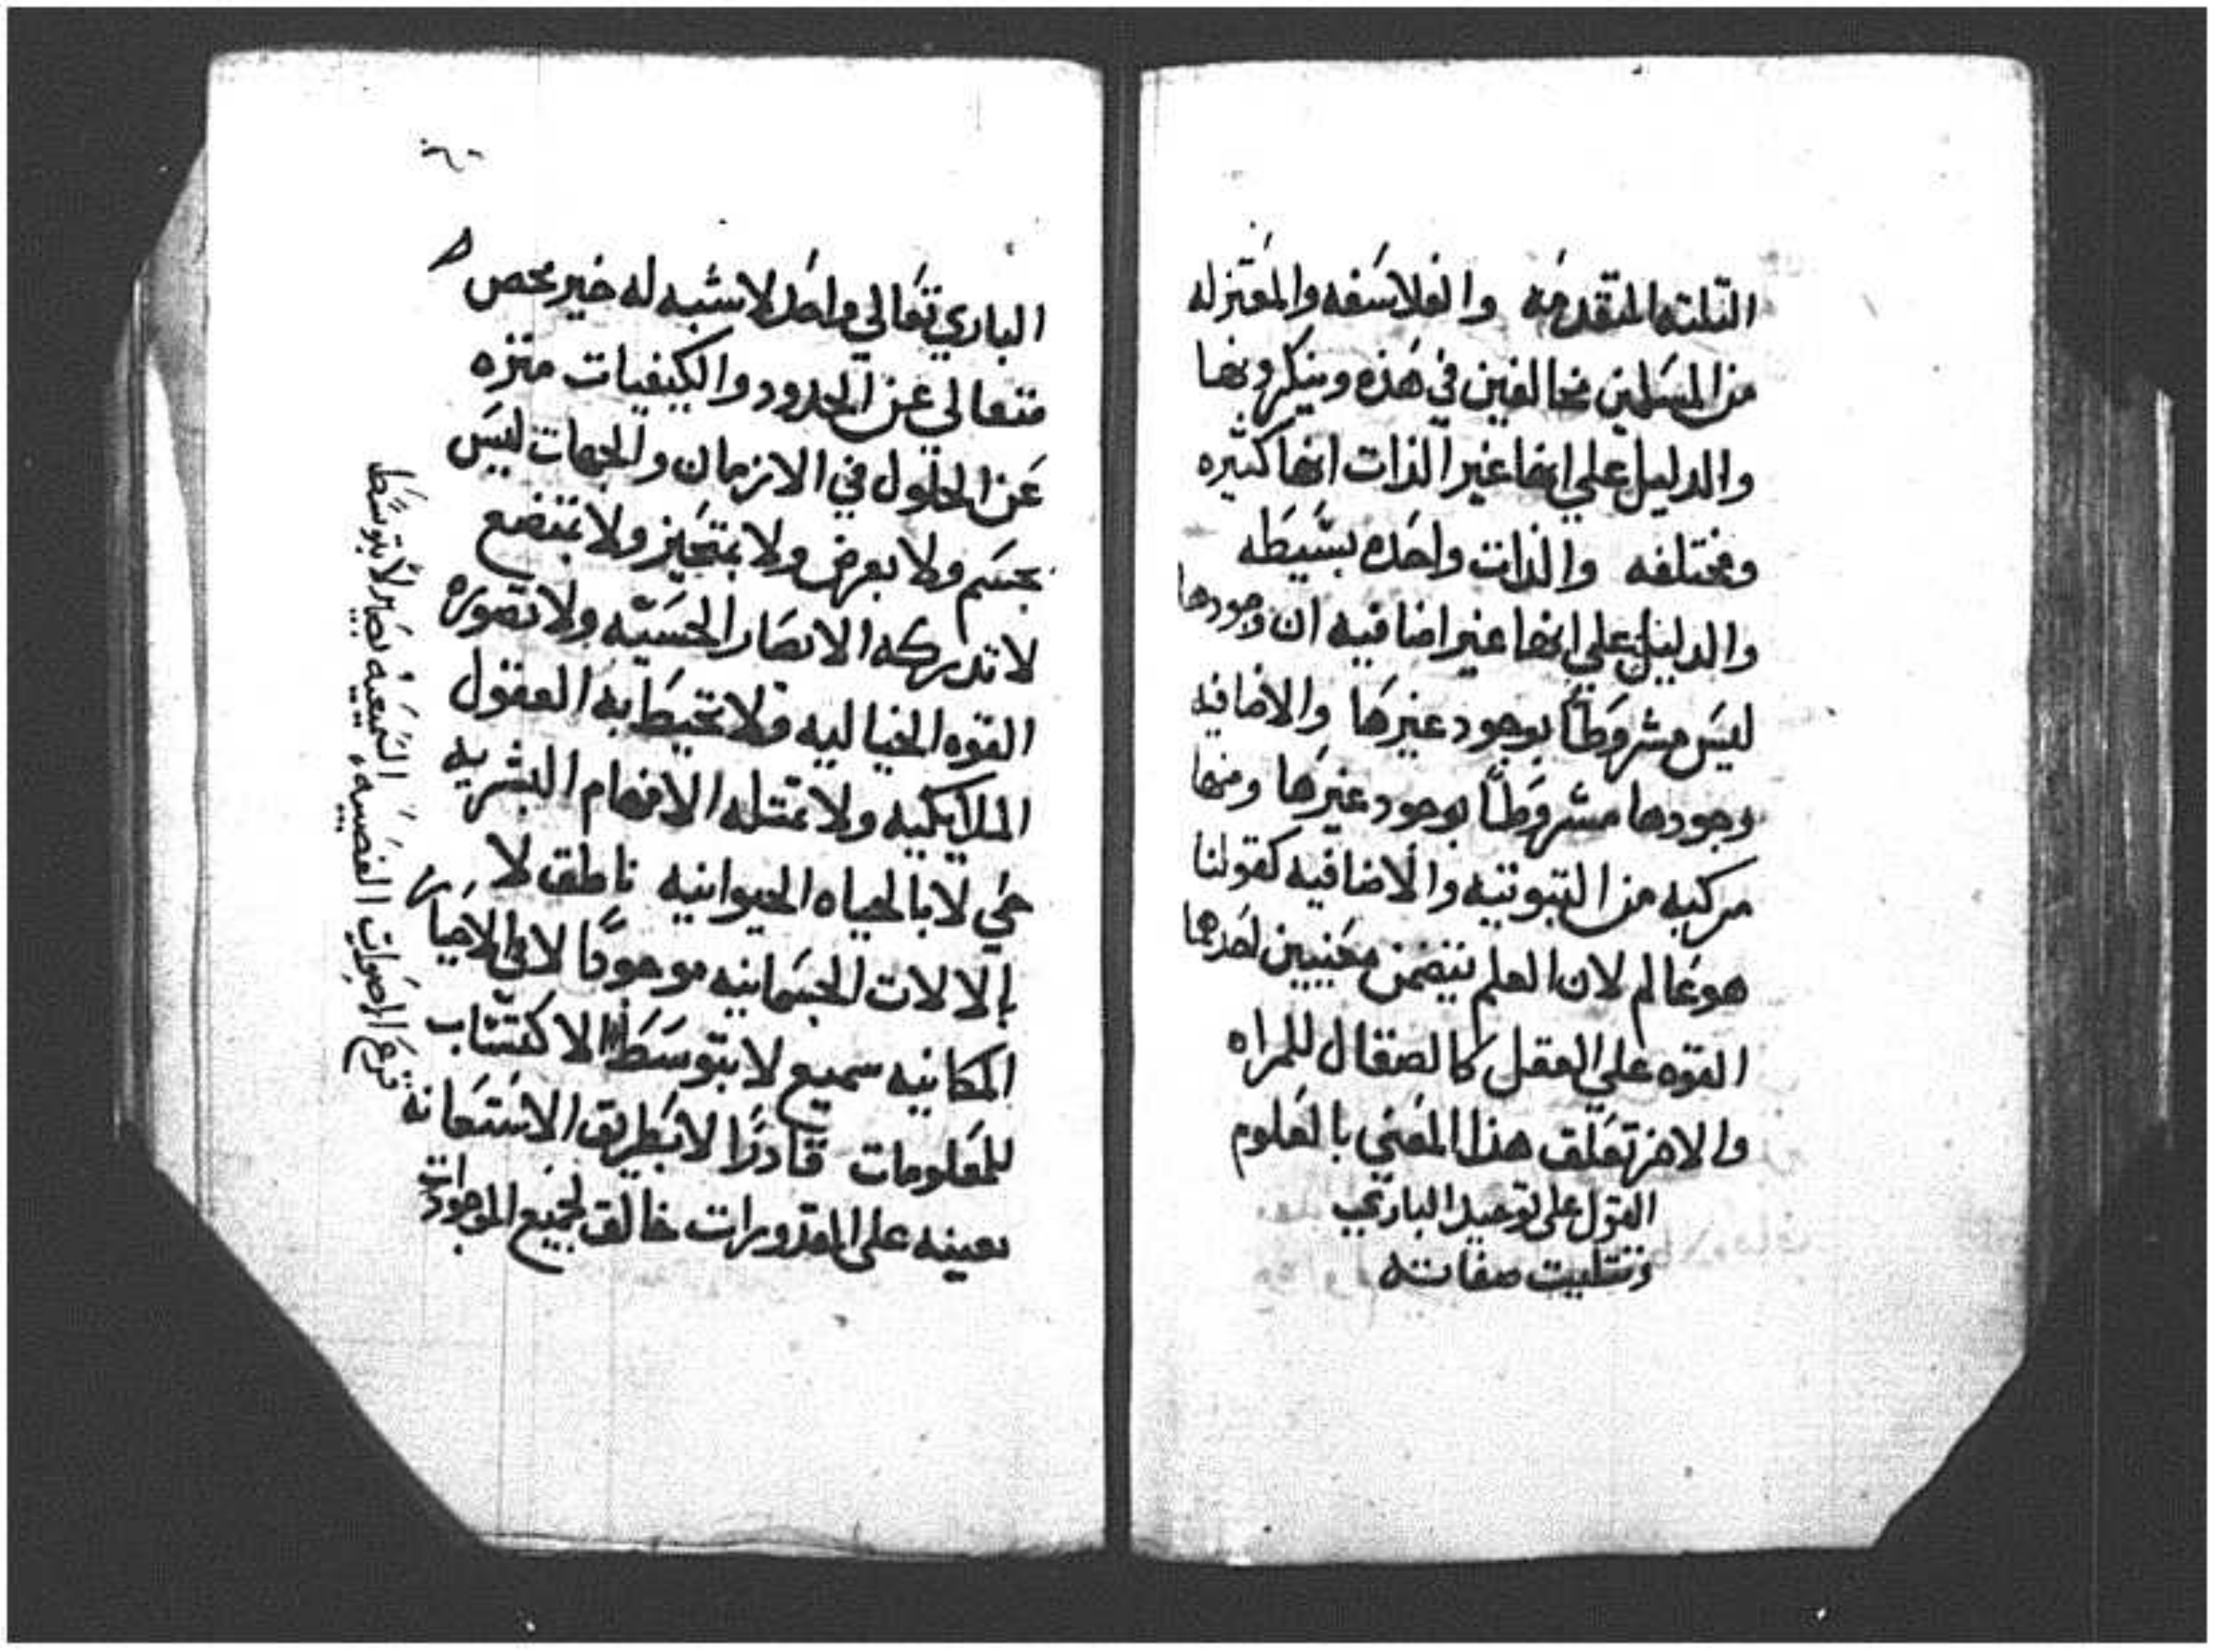 التلته المتقدمه والفلاسفه والمعتزله
من المسلمين مخالفين في هذه وينكرونها
والدليل علي انها غير الذات انها كثيره
ومختلفه والذات واحده بسيطه
والدليل علي انها غير اضافيه ان وجودها
ليس مشروطًا بوجود غيرها والاضافيه
وجودها مشروطًا بوجود غيرها ومنها
مركبه من التبوتيه والاضافيه كقولنا
هو عالم لان العلم يتضمن معنيين احدهما
القوه علي العقل كالصقال للمراه
والاخر تعلق هذا المعني بالعلوم
القول علي توحيد الباري
وتتليت صفاته
الباري تعالي واحد لا شبه له خير محض
متعالي عن الحدود والكيفيات منزه
عن الحلول في الازمان والجهات ليس
بجسم ولا بعرض ولا بمتحيز ولا بمتضع
لا تدركه الابصار الحسيه ولا تصوره
القوه الخياليه ولا تحيط به العقول
الملايكيه ولا تمتله الافهام البشريه
حي لا بالحياه الحيوانيه ناطق لا
بالالات الجسمانيه موجودًا لا في الاحياز
المكانيه سميع لا بتوسط الاكتساب
للمعلومات قادرًا لا بطريق الاستعانه
بعينه علي المقدورات خالق لجميع الموجودات
قرع الاصوات العصبيه السمعيه بصير لا بتوسط